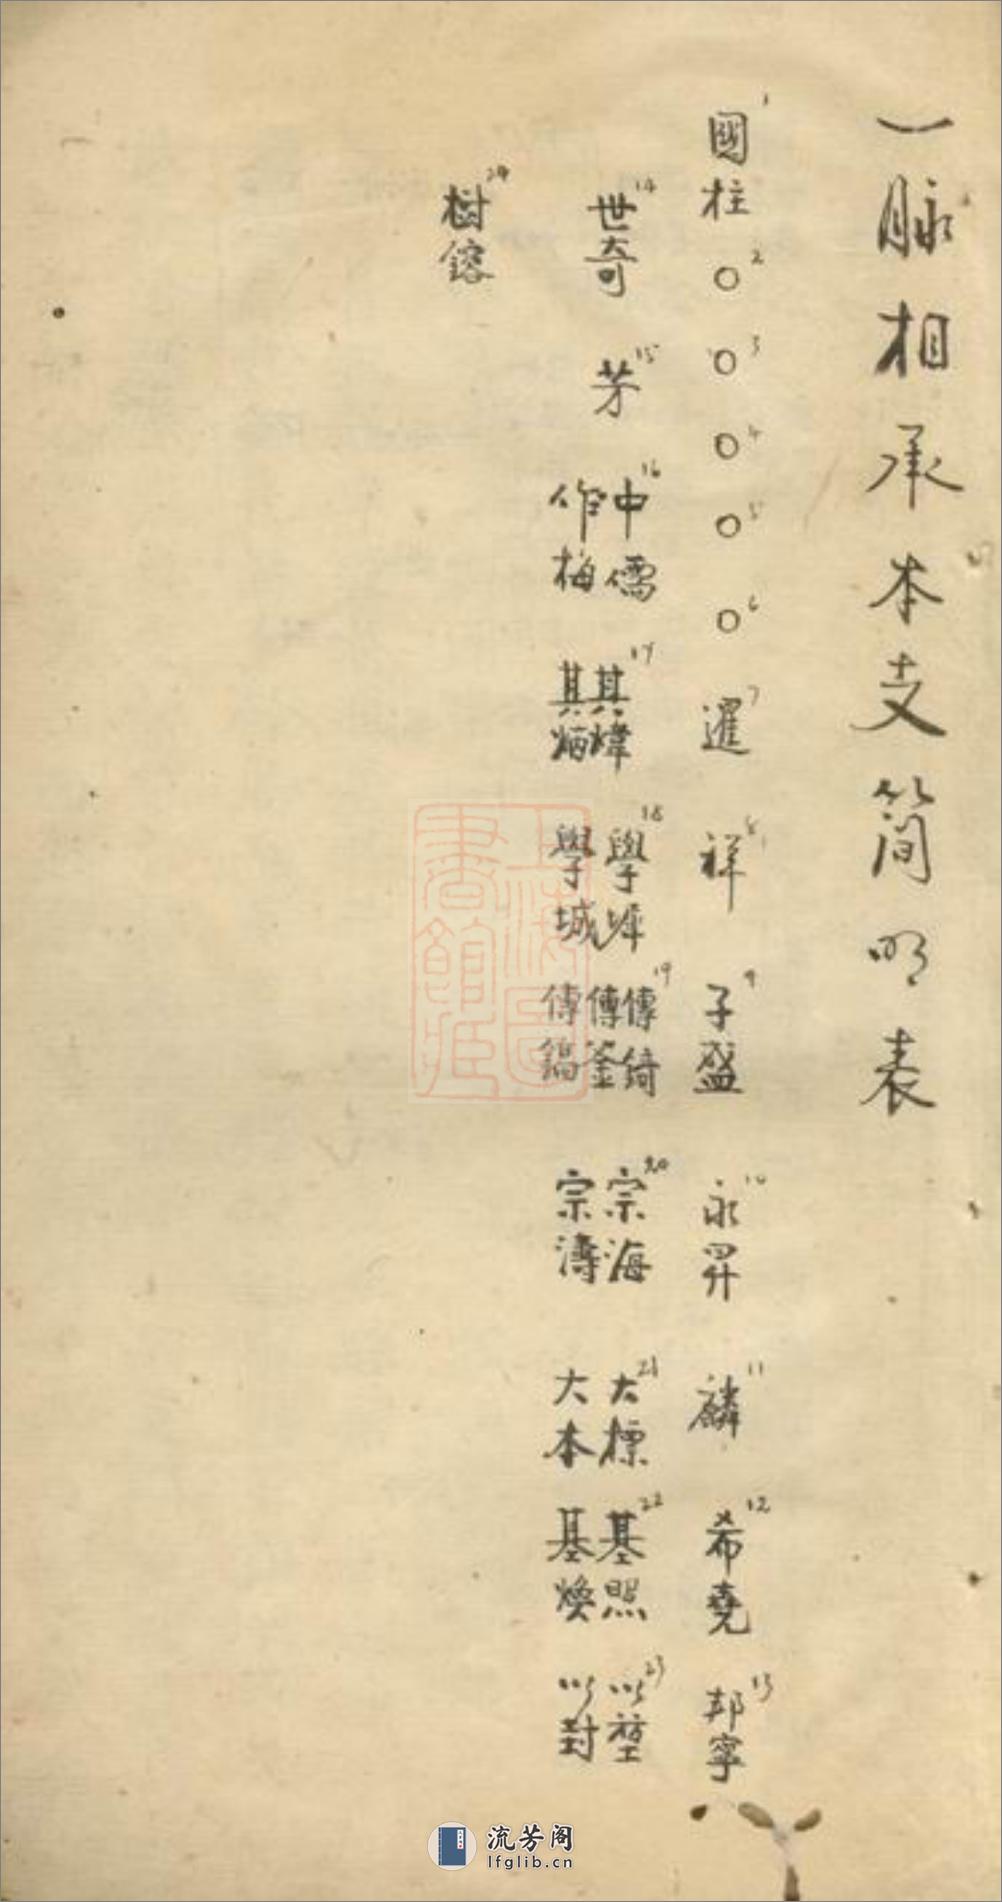 一脉相承本支简明表
1 國柱 2 ○ 3 ○ 4 ○ 5 ○ 6 ○ 7 暹 8 祥 9 子盛 10 永昇 11 麟 12 希堯 13 邦寧
14 世奇 15 芳 16 中儒 17 其煒 18 學墀 19 傳錡 20 宗海 21 大標 22 基照 23 以
作梅 其炳 學城 傳釜 宗濤 大本 基煥 以封
傳鎬
24 樹鎔
上海圖書館藏
流芳阁
lfglib.cn